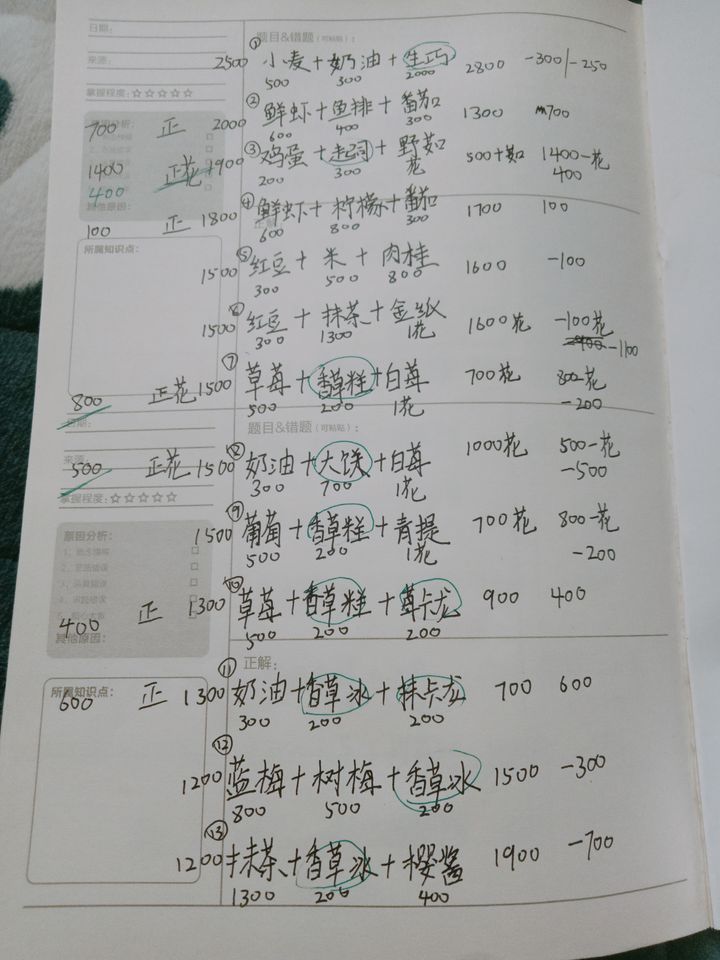 日期:
题目&错题(可粘贴):
来源:
① 2500 小麦+奶油+生巧 2800 -300/-250
500 300 2000
掌握程度:☆☆☆☆☆
700 正 2000 ② 鲜虾+鱼排+番茄 1300 700
600 400 300
1400 正花 1900 ③ 鸡蛋+起司+野茹 500+茹 1400-花
400 200 300 花 400
其他原因:
100 正 1800 ④ 鲜虾+柠檬+番茄 1700 100
正解:
600 800 300
所属知识点:
1500 ⑤ 红豆+米+肉桂 1600 -100
300 500 800
1500 ⑥ 红豆+抹茶+金纸 1600花 -100花
300 1300 1花 -1100
800 正花 1500 ⑦ 草莓+香草糕+白莓 700花 800-花
500 200 1花 -200
日期:
题目&错题(可粘贴):
来源:
500 正花 1500 ⑧ 奶油+大馍+白莓 1000花 500-花
300 700 1花 -500
掌握程度:☆☆☆☆☆
1500 ⑨ 葡萄+香草糕+青提 700花 800-花
500 200 1花 -200
原因分析:
400 正 1300 ⑩ 草莓+香草糕+莓卡龙 900 400
500 200 200
其他原因:
正解:
所属知识点:
600 正 1300 ⑪ 奶油+香草冰+抹卡龙 700 600
300 200 200
1200 ⑫ 蓝梅+树梅+香草冰 1500 -300
800 500 200
1200 ⑬ 抹茶+香草冰+樱酱 1900 -700
1300 200 400